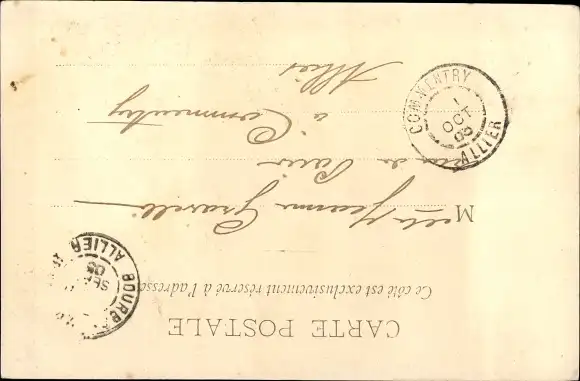 CARTE POSTALE
Ce côté est exclusivement réservé à l'adresse
Mlle Jeanne
rue de Paris
à Commentry
Allier
COMMENTRY
1
OCT
05
ALLIER
BOURB
SEPT
05
ALLIER